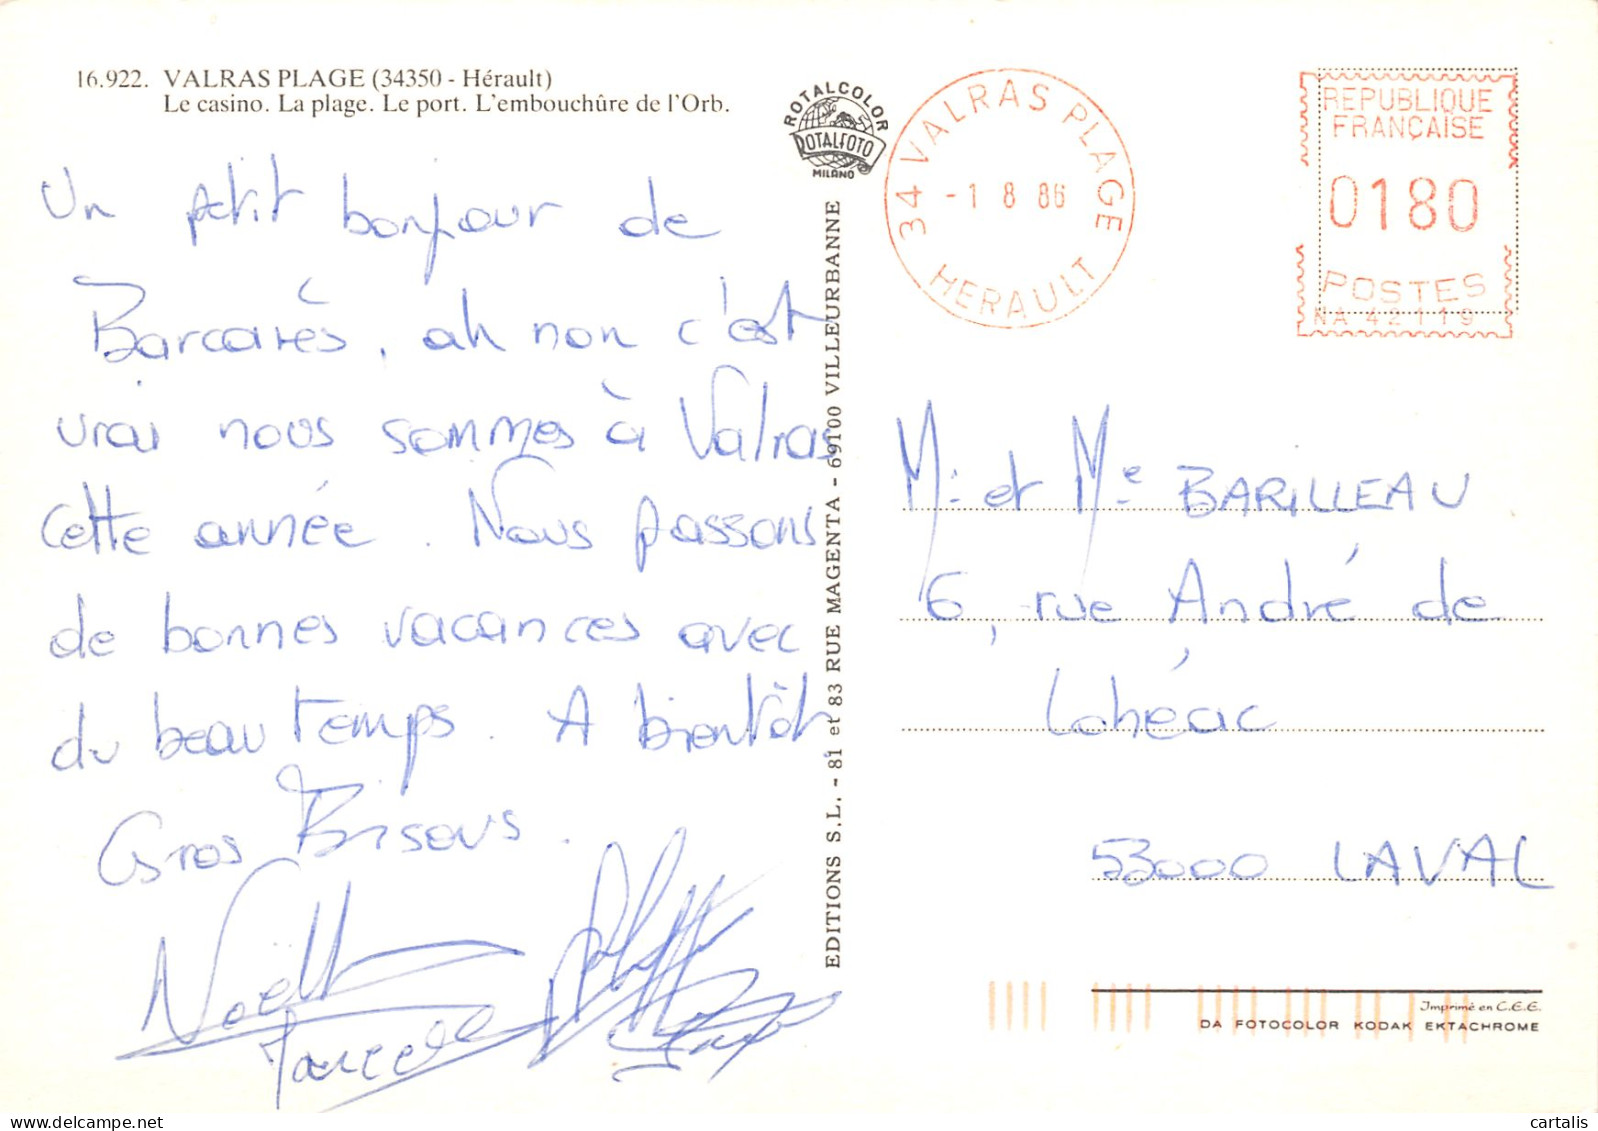 16.922. VALRAS PLAGE (34350 - Hérault)
Le casino. La plage. Le port. L'embouchûre de l'Orb.
ROTALCOLOR
ROTALFOTO
MILANO
34 VALRAS PLAGE
-1 8 86
HERAULT
REPUBLIQUE
FRANÇAISE
0180
POSTES
NA 42119
Un petit bonjour de
Barcarès, ah non c'est
vrai nous sommes à Valras
cette année. Nous passons
de bonnes vacances avec
du beau temps. A bientôt
Gros Bisous.
EDITIONS S.L. - 81 et 83 RUE MAGENTA - 69100 VILLEURBANNE
Mr et Me BARILLEAU
6, rue André de
Lohéac
53000 LAVAL
Imprimé en C.E.E.
DA FOTOCOLOR KODAK EKTACHROME
cartalis
www.delcampe.net